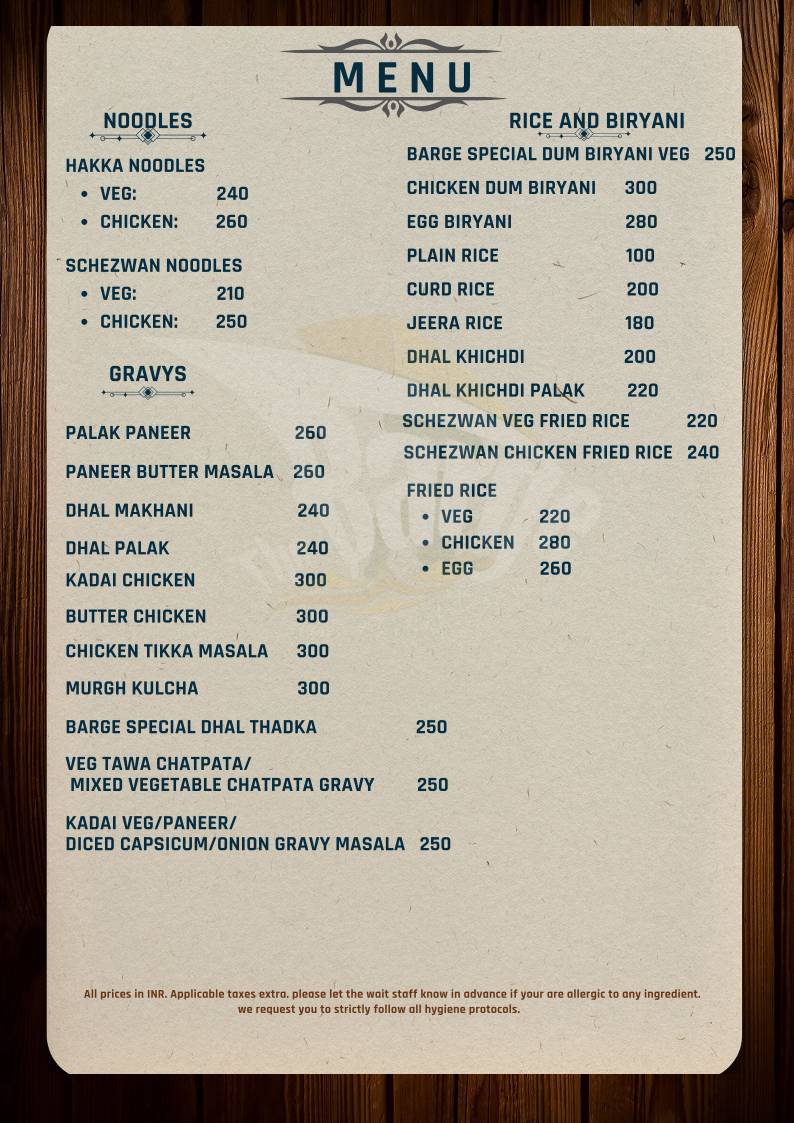 MENU
NOODLES
HAKKA NOODLES
• VEG: 240
• CHICKEN: 260
SCHEZWAN NOODLES
• VEG: 210
• CHICKEN: 250
GRAVYS
PALAK PANEER 260
PANEER BUTTER MASALA 260
DHAL MAKHANI 240
DHAL PALAK 240
KADAI CHICKEN 300
BUTTER CHICKEN 300
CHICKEN TIKKA MASALA 300
MURGH KULCHA 300
BARGE SPECIAL DHAL THADKA 250
VEG TAWA CHATPATA/
MIXED VEGETABLE CHATPATA GRAVY 250
KADAI VEG/PANEER/
DICED CAPSICUM/ONION GRAVY MASALA 250
RICE AND BIRYANI
BARGE SPECIAL DUM BIRYANI VEG 250
CHICKEN DUM BIRYANI 300
EGG BIRYANI 280
PLAIN RICE 100
CURD RICE 200
JEERA RICE 180
DHAL KHICHDI 200
DHAL KHICHDI PALAK 220
SCHEZWAN VEG FRIED RICE 220
SCHEZWAN CHICKEN FRIED RICE 240
FRIED RICE
• VEG 220
• CHICKEN 280
• EGG 260
All prices in INR. Applicable taxes extra. please let the wait staff know in advance if your are allergic to any ingredient.
we request you to strictly follow all hygiene protocols.